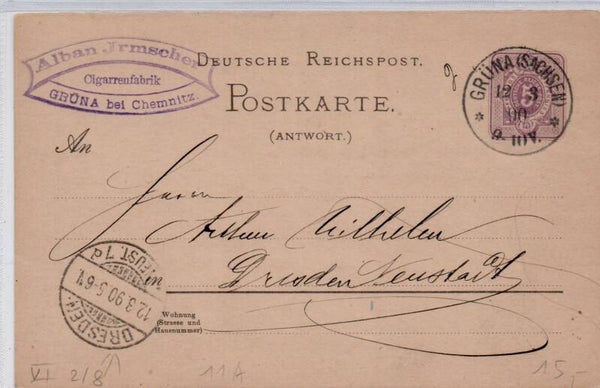 Alban Irmscher
Cigarrenfabrik
GRÜNA bei Chemnitz.
DEUTSCHE REICHSPOST.
POSTKARTE.
(ANTWORT.)
GRÜNA (SACHSEN)
12 3
90
9-10V.
An
Herrn
Arthur Wilhelm
in
Dresden Neustadt
DRESDEN
12.3.90.5-6N
NEUST. 7 d
Wohnung
(Strasse und
Hausnummer)
VI 2/8
11A
15,-